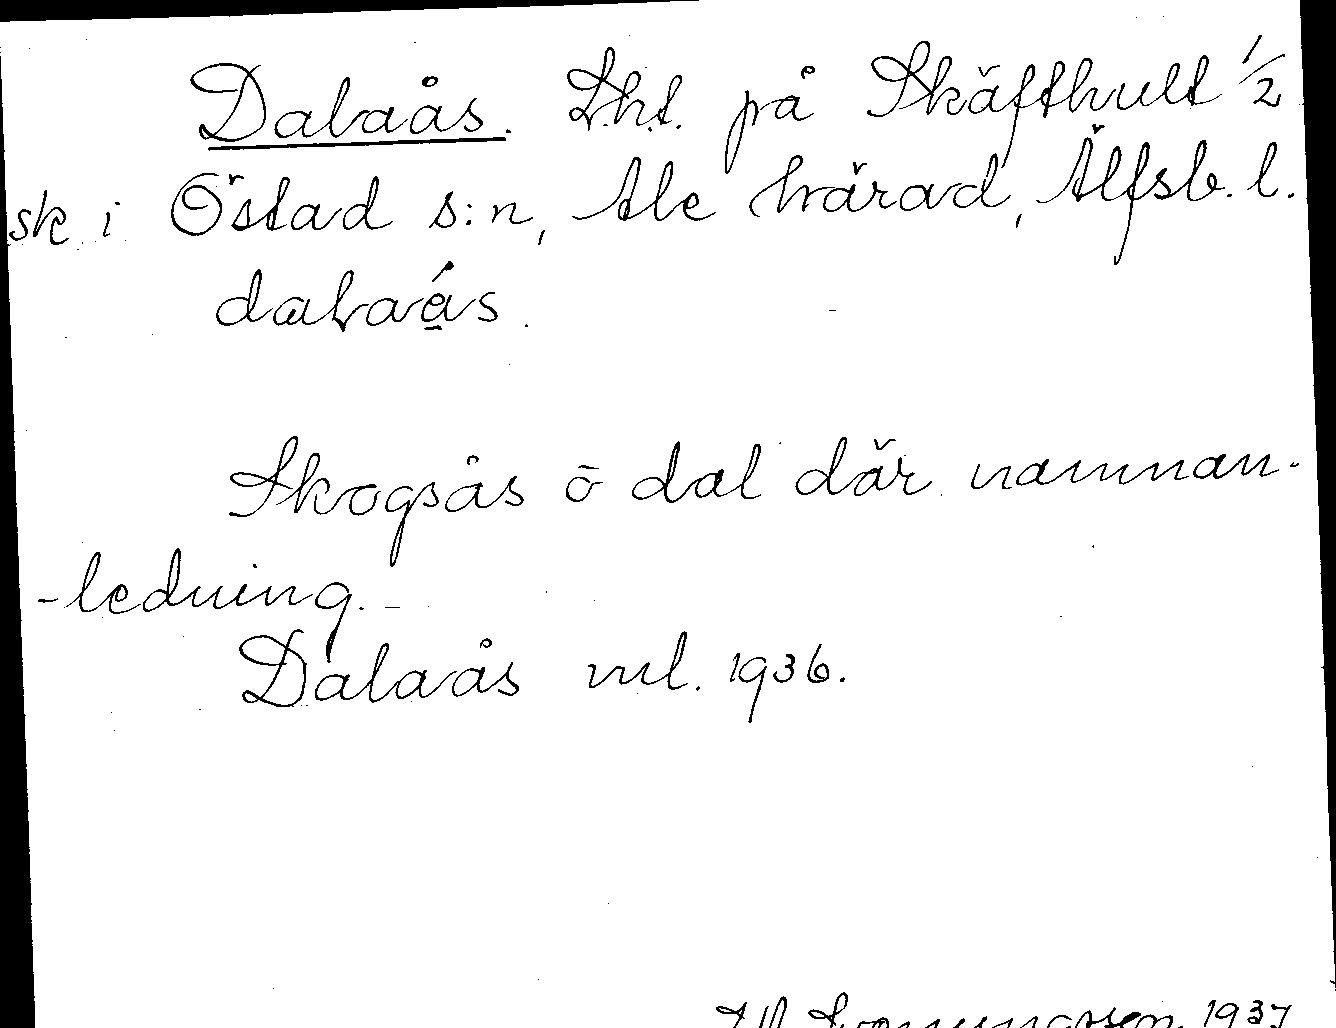 Dalaås. Lht. på Skäfthult 1/2
sk i Östad s:n, Ale härad, Älfsb. l.
dalaås.
Skogsås ō dal där namnan-
-ledning.
Dalaås ml. 1936.
1937